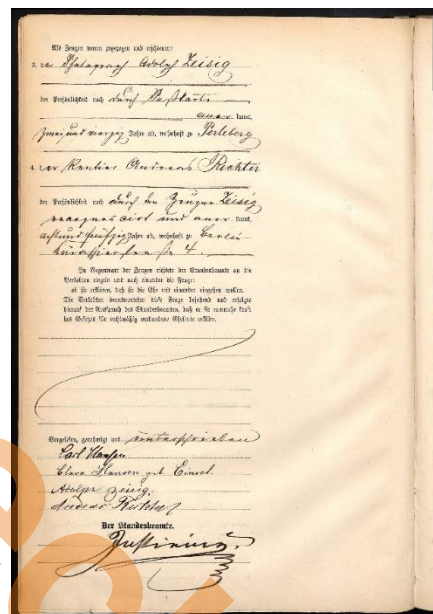 Als Zeugen waren zugezogen und erschienen:
3. der Photograph Adolph Zeisig
der Persönlichkeit nach durch Paßkarte
aner kannt,
zwei und vierzig Jahre alt, wohnhaft zu Perleberg
4. der Rentier Andreas Richter
der Persönlichkeit nach durch den Zeugen Zeisig
recognoscirt und aner kannt,
acht und fünfzig Jahre alt, wohnhaft zu Berlin
straße 4.
In Gegenwart der Zeugen richtete der Standesbeamte an die
Verlobten einzeln und nach einander die Frage:
ob sie erklären, daß sie die Ehe mit einander eingehen wollen.
Die Verlobten beantworteten diese Frage bejahend und erfolgte
hierauf der Ausspruch des Standesbeamten, daß er sie nunmehr kraft
des Gesetzes für rechtmäßig verbundene Eheleute erkläre.
Vorgelesen, genehmigt und unterschrieben
Carl
Clara geb.
Adolph Zeisig
Andreas Richter
Der Standesbeamte.